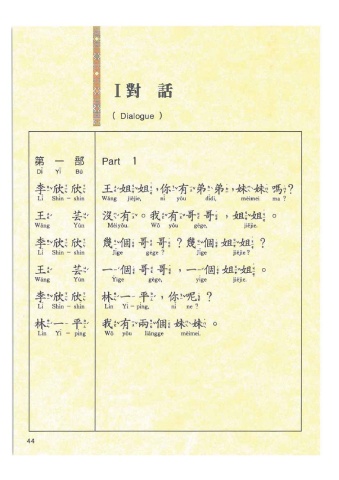 I 對 話
( Dialogue )
第 一 部 Part 1
Dì Yī Bù
李欣欣 王姐姐,你有弟弟,妹妹嗎?
Lǐ Shin-shin Wáng jiějie, nǐ yǒu dìdi, mèimei ma?
王 芸 沒有。我有哥哥,姐姐。
Wáng Yún Méiyǒu. Wǒ yǒu gēge, jiějie.
李欣欣 幾個哥哥?幾個姐姐?
Lǐ Shin-shin Jǐge gēge? Jǐge jiějie?
王 芸 一個哥哥,一個姐姐。
Wáng Yún Yíge gēge, yíge jiějie.
李欣欣 林一平,你呢?
Lǐ Shin-shin Lín Yī-píng, nǐ ne?
林一平 我有兩個妹妹。
Lín Yī-píng Wǒ yǒu liǎngge mèimei.
44